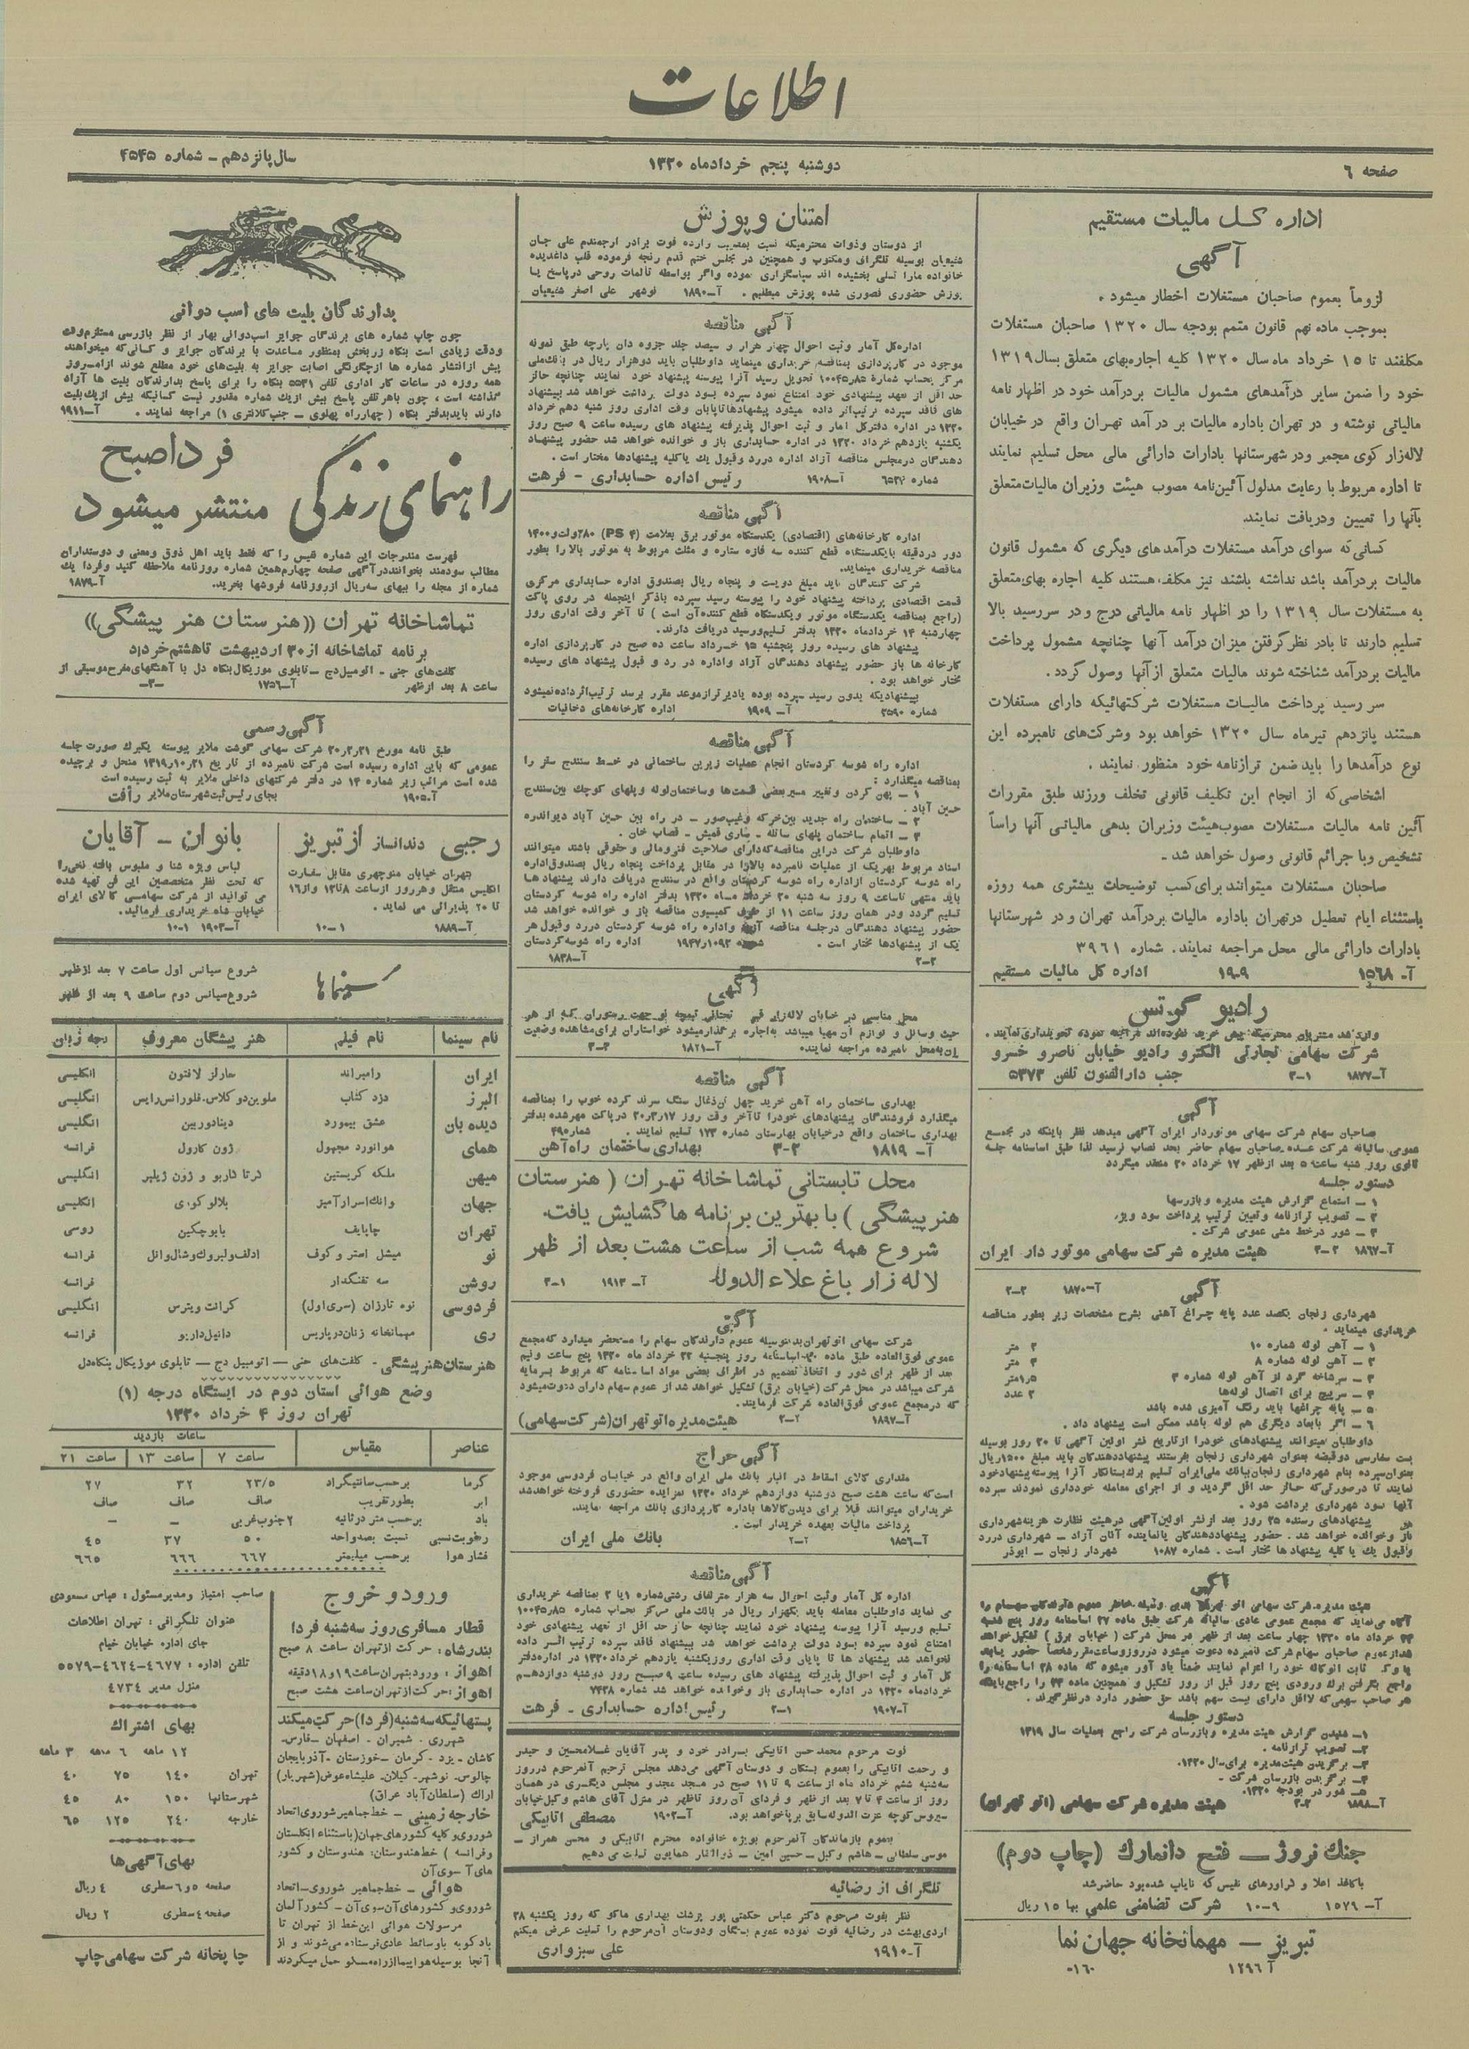 اطلاعات
صفحه ۶
دوشنبه پنجم خردادماه ۱۳۲۰
سال پانزدهم - شماره ۴۵۴۵
اداره کل مالیات مستقیم
آگهی
لزوماً بعموم صاحبان مستغلات اخطار میشود .
بموجب ماده نهم قانون متمم بودجه سال ۱۳۲۰ صاحبان مستغلات
مکلفند تا ۱۵ خرداد ماه سال ۱۳۲۰ کلیه اجاره‌بهای متعلق بسال ۱۳۱۹
خود را ضمن سایر درآمدهای مشمول مالیات بردرآمد خود در اظهار نامه
مالیاتی نوشته و در تهران باداره مالیات بر درآمد تهران واقع در خیابان
لاله‌زار کوی مجمر و در شهرستانها بادارات دارائی مالی محل تسلیم نمایند
تا اداره مربوط با رعایت مدلول آئین‌نامه مصوب هیئت وزیران مالیات‌متعلق
بآنها را تعیین ودریافت نمایند.
کسانی که سوای درآمد مستغلات درآمدهای دیگری که مشمول قانون
مالیات بردرآمد باشد نداشته باشند نیز مکلف هستند کلیه اجاره بهای‌متعلق
به مستغلات سال ۱۳۱۹ را در اظهار نامه مالیاتی درج و در سررسید بالا
تسلیم دارند تا بادر نظر گرفتن میزان درآمد آنها چنانچه مشمول پرداخت
مالیات بردرآمد شناخته شوند مالیات متعلق از آنها وصول گردد .
سر رسید پرداخت مالیات مستغلات شرکتهائیکه دارای مستغلات
هستند پانزدهم تیرماه سال ۱۳۲۰ خواهد بود وشرکت‌های نامبرده این
نوع درآمدها را باید ضمن ترازنامه خود منظور نمایند .
اشخاصی که از انجام این تکلیف قانونی تخلف ورزند طبق مقررات
آئین نامه مالیات مستغلات مصوب‌هیئت وزیران بدهی مالیاتی آنها راساً
تشخیص وبا جرائم قانونی وصول خواهد شد .
صاحبان مستغلات میتوانند برای کسب توضیحات بیشتری همه روزه
باستثناء ایام تعطیل درتهران باداره مالیات بردرآمد تهران و در شهرستانها
بادارات دارائی مالی محل مراجعه نمایند. شماره ۳۹۶۱
آ- ۱۵۶۸ ۹-۱۹ اداره کل مالیات مستقیم
رادیو گوتس
شرکت سهامی تجارتی الکترو رادیو خیابان ناصر و خسرو
آ-۱۸۷۷ ۱-۲ جنب دارالفنون تلفن ۵۳۷۳
آگهی
صاحبان سهام شرکت سهامی موتوردار ایران آگهی میدهد نظر باینکه در مجمع
عمومی سالیانه شرکت عده صاحبان سهام حاضر بحد نصاب نرسید لذا طبق اساسنامه جلسه
ثانوی روز شنبه ساعت ۵ بعد ازظهر ۱۷ خرداد ۲۰ منعقد میگردد
دستور جلسه
۱ - استماع گزارش هیئت مدیره و بازرسها
۲ - تصویب ترازنامه وتعیین ترتیب پرداخت سود ویژه
۳ - شور درخط مشی عمومی شرکت .
آ-۱۸۶۷ ۲-۲ هیئت مدیره شرکت سهامی موتور دار ایران
آگهی آ-۱۸۷۰ ۲-۲
شهرداری زنجان یکصد عدد پایه چراغ آهنی بشرح مشخصات زیر بطور مناقصه
خریداری مینماید .
۱ - آهن لوله شماره ۱۰ ۳ متر
۲ - آهن لوله شماره ۸ ۳ متر
۳ - سرشاخه گرد از آهن لوله شماره ۳ ۱/۵متر
۴ - سرپیچ برای اتصال لوله‌ها ۲ عدد
۵ - پایه چراغها باید رنگ آمیزی شده باشد
۶ - اگر بابعاد دیگری هم لوله باشد ممکن است پیشنهاد داد .
داوطلبان میتوانند پیشنهادهای خودرا ازتاریخ نشر اولین آگهی تا ۲۰ روز بوسیله
پست سفارشی دوقبضه بعنوان شهرداری زنجان بفرستند پیشنهاددهندگان باید مبلغ ۱۵۰۰ریال
بعنوان‌سپرده بنام شهرداری زنجان‌ببانک ملی‌ایران تسلیم برگ‌بستانکار آنرا پیوسته‌پیشنهادخود
نمایند تا درصورتی‌که حائز حد اقل گردید و از اجرای معامله خودداری نمودند سپرده
آنها سود شهرداری برداشت شود .
پیشنهادهای رسیده ۲۵ روز بعد ازنشر اولین‌آگهی درهیئت نظارت هزینه‌شهرداری
باز وخوانده خواهد شد . حضور پیشنهاددهندگان یانماینده آنان آزاد - شهرداری دررد
وقبول یک یا کلیه پیشنهاد ها مختار است . شماره ۱۰۸۷ شهردار زنجان - ابوذر
آگهی
دستور جلسه
۱- شنیدن گزارش هیئت مدیره و بازرسان شرکت راجع بعملیات سال ۱۳۱۹
۲- تصویب ترازنامه .
۳- برگزیدن هیئت‌مدیره برای‌سال ۱۳۲۰.
۴- برگزیدن بازرسان شرکت -
۵- شور در بودجه ۱۳۲۰.
آ-۱۸۹۸ ۲-۲ هیئت مدیره شرکت سهامی (اتو تهران)
جنك نروژ - فتح دانمارك (چاپ دوم)
باکاغذ اعلا و گراورهای نفیس که نایاب شده‌بود حاضرشد
آ- ۱۵۷۹ ۹-۱۰ شرکت تضامنی علمی بها ۱۵ ریال
تبریز - مهمانخانه جهان نما
آ ۱۲۹۶
امتنان و پوزش
از دوستان وذوات محترمیکه نسبت بمصیبت وارده فوت برادر ارجمندم علی جان
شفیعیان بوسیله تلگراف ومکتوب و همچنین در مجلس ختم قدم رنجه فرموده قلب داغدیده
خانواده مارا تسلی بخشیده اند سپاسگزاری نموده واگر بواسطه تألمات روحی درپاسخ یا
پوزش حضوری قصوری شده پوزش میطلبم . آ-۱۸۹۰ نوشهر علی اصغر شفیعیان
آگهی مناقصه
اداره‌کل آمار وثبت احوال چهار هزار و سیصد جلد جزوه دان پارچه طبق نمونه
موجود در کارپردازی بمناقصه خریداری مینماید داوطلبان باید دوهزار ریال در بانک‌ملی
مرکز بحساب شماره ۱۰۰۴۵٫۸۵ تحویل رسید آنرا پیوسته پیشنهاد خود نمایند چنانچه حائز
حد اقل از تعهد پیشنهادی خود امتناع نمود سپرده بسود دولت برداشت خواهد شد پیشنهاد
های فاقد سپرده ترتیب‌اثر داده میشود پیشنهادهاتاپایان وقت اداری روز شنبه دهم خرداد
۱۳۲۰ در اداره دفترکل امار و ثبت احوال پذیرفته پیشنهاد های رسیده ساعت ۹ صبح روز
یکشنبه یازدهم خرداد ۱۳۲۰ در اداره حسابداری باز و خوانده خواهد شد حضور پیشنهاد
دهندگان درمجلس مناقصه آزاد اداره دررد وقبول یك یاکلیه پیشنهادها مختار است .
آ-۱۹۰۸ رئیس اداره حسابداری - فرهت
آگهی مناقصه
اداره کارخانه‌های (اقتصادی) یکدستگاه موتور برق بعلامت (PS ۴) ۳۸۰ولت‌و ۱۴۰۰
دور دردقیقه بایکدستگاه قطع کننده سه فازه ستاره و مثلث مربوط به موتور بالا را بطور
مناقصه خریداری مینماید.
شرکت کنندگان باید مبلغ دویست و پنجاه ریال بصندوق اداره حسابداری مرکزی
قسمت اقتصادی پرداخته پیشنهاد خود را پیوسته رسید سپرده باذکر اینجمله در روی پاکت
(راجع بمناقصه یکدستگاه موتور ویکدستگاه قطع کننده‌آن است ) تا آخر وقت اداری روز
چهارشنبه ۱۴ خردادماه ۱۳۲۰ بدفتر تسلیم‌ورسید دریافت دارند.
پیشنهاد های رسیده روز پنجشنبه ۱۵ خرداد ساعت ده صبح در کارپردازی اداره
کارخانه ها باز حضور پیشنهاد دهندگان آزاد واداره در رد و قبول پیشنهاد های رسیده
مختار خواهد بود .
پیشنهادیکه بدون رسید سپرده بوده یادیرترازموعد مقرر برسد ترتیب‌اثردادهنمیشود
شماره ۲۵۹۰ آ- ۱۹۰۹ اداره کارخانه‌های دخانیات
آگهی مناقصه
اداره راه شوسه کردستان انجام عملیات زیرین ساختمانی در خط سنندج سقز را
بمناقصه میگذارد :
۱ - پهن کردن وتغییر مسیربعضی قسمت‌ها وساختمان‌لوله وپلهای کوچك بین‌سنندج
حسین آباد .
داوطلبان شرکت دراین مناقصه‌که‌دارای صلاحیت فنی‌ومالی و حقوقی باشند میتوانند
اسناد مربوط بهریك از عملیات نامبرده بالارا در مقابل پرداخت پنجاه ریال بصندوق‌اداره
راه شوسه کردستان ازاداره راه شوسه کردستان واقع در سنندج دریافت دارند پیشنهاد ها
باید منتهی تاساعت ۹ روز سه شنبه ۲۰ خرداد ماه ۱۳۲۰ بدفتر اداره راه شوسه کردستان
تسلیم گردد ودر همان روز ساعت ۱۱ از طرف کمیسیون مناقصه باز و خوانده خواهد شد
حضور پیشنهاد دهندگان درجلسه مناقصه آزاد واداره راه شوسه کردستان دررد وقبول‌هر
یک از پیشنهادها مختار است . اداره راه شوسه‌کردستان
۲-۲ آ-۱۸۳۸
آگهی
حیث وسائل و لوازم آن مهیا میباشد به‌اجاره برگذارمیشود خواستاران برای‌مشاهده وضعیت
آن به‌محل نامبرده مراجعه نمایند. آ-۱۸۲۱ ۳-۳
آگهی مناقصه
بهداری ساختمان راه آهن خرید چهل تن‌ذغال سنگ سرند کرده خوب را بمناقصه
میگذارد فروشندگان پیشنهادهای خودرا تاآخر وقت روز ۲۰٫۳٫۱۷ درپاکت مهرشده بدفتر
بهداری ساختمان واقع درخیابان بهارستان شماره ۱۷۳ تسلیم نمایند . شماره ۴۹۰
آ- ۱۸۱۹ ۳-۳ بهداری ساختمان راه‌آهن
محل تابستانی تماشاخانه تهران ( هنرستان
هنرپیشگی ) با بهترین برنامه ها گشایش یافت.
شروع همه شب از ساعت هشت بعد از ظهر
لاله زار باغ علاء الدوله آ- ۱۹۱۳ ۱-۲
آگهی
شرکت سهامی اتوتهران‌بدینوسیله عموم دارندگان سهام را مستحضر میدارد که‌مجمع
عمومی فوق‌العاده طبق ماده ۴۰-اساسنامه روز پنجشنبه ۲۲ خرداد ماه ۱۳۲۰ پنج ساعت ونیم
بعد از ظهر برای شور و اتخاذ تصمیم در اطراف بعضی مواد اساسنامه که مربوط بسرمایه
شرکت میباشد در محل شرکت (خیابان برق) تشکیل خواهد شد از عموم سهام داران دعوت‌میشود
که درمجمع عمومی فوق‌العاده شرکت فرمایند.
آ-۱۸۹۷ ۲-۲ هیئت‌مدیره‌اتوتهران(شرکت‌سهامی)
آگهی حراج
مقداری کالای اسقاط در انبار بانك ملی ایران واقع در خیابان فردوسی موجود
است‌که ساعت هشت صبح دوشنبه دوازدهم خرداد ۱۳۲۰ بمزایده حضوری فروخته خواهدشد
خریداران میتوانند قبلا برای دیدن‌کالاها باداره کارپردازی بانك مراجعه نمایند.
پرداخت مالیات بعهده خریدار است .
آ-۱۸۵۶ ۲-۲ بانك ملی ایران
آگهی مناقصه
اداره کل آمار وثبت احوال سه هزار مترلفاف رشتی‌شماره ۱ یا ۲ بمناقصه خریداری
می نماید داوطلبان معامله باید یکهزار ریال در بانک ملی مرکز بحساب شماره ۱۰۰۴۵٫۸۵
تسلیم ورسید آنرا پیوسته پیشنهاد خود نمایند چنانچه حائز حد اقل از تعهد پیشنهادی خود
امتناع نمود سپرده بسود دولت برداشت خواهد شد پیشنهاد فاقد سپرده ترتیب اثر داده
نخواهد شد پیشنهاد ها تا پایان وقت اداری روزیکشنبه یازدهم خرداد ۱۳۲۰ در اداره‌دفتر
کل آمار و ثبت احوال پذیرفته پیشنهاد های رسیده ساعت ۹ صبح روز دوشنبه دوازدهم
خردادماه ۱۳۲۰ در اداره حسابداری باز وخوانده خواهد شد شماره ۷۴۳۸
آ-۱۹۰۷ ۱-۲ رئیس اداره حسابداری - فرهت
فوت مرحوم محمدحسن اتابیکی برادر خود و پدر آقایان غلامحسین و حیدر
و رحمت اتابیکی را بعموم بستگان و دوستان آگهی می‌دهد مجلس ترحیم آنمرحوم درروز
سه‌شنبه ششم خرداد ماه از ساعت ۹ تا ۱۱ صبح در مسجد مجد و مجلس دیگری در همان
روز از ساعت ۴ تا ۷ بعد از ظهر و فردای آن‌روز تاظهر در منزل آقای هاشم وکیل‌خیابان
سیروس‌کوچه عزت الدوله‌سابق برپاخواهد بود. آ-۱۹۰۲ مصطفی اتابیکی
بعموم بازماندگان آنمرحوم بویژه خانواده محترم اتابیکی و محسن همراز -
موسی سلطانی - هاشم وکیل - حسین امین - ذوالفقار همایون تسلیت می دهیم
تلگراف از رضائیه
نظر بفوت مرحوم دکتر عباس حکمتی پور پزشك بهداری ماکو که روز یکشنبه ۲۸
اردی‌بهشت در رضائیه فوت نموده عموم بستگان ودوستان آن‌مرحوم را تسلیت عرض میکنم
آ-۱۹۱۰ علی سبزواری
بدارندگان بلیت های اسب دوانی
چون چاپ شماره های برندگان جوایز اسب‌دوانی بهار از نظر بازرسی مستلزم‌وقت
ودقت زیادی است بنگاه زربخش بمنظور مساعدت با برندگان جوایز و کسانی‌که میخواهند
پیش ازانتشار شماره ها ازچگونگی اصابت جوایز به بلیت‌های خود مطلع شوند ازامروز
همه روزه در ساعات کار اداری تلفن ۵۵۳۱ بنگاه را برای پاسخ بدارندگان بلیت ها آزاد
گذاشته است ، چون باهرتلفن پاسخ بیش ازیك شماره مقدور نیست کسانیکه بیش ازیك‌بلیت
دارند بایدبدفتر بنگاه ( چهارراه پهلوی - جنب‌کلانتری ۱) مراجعه نمایند . آ-۱۹۱۱
فرداصبح
راهنمای زندگی منتشر میشود
فهرست مندرجات این شماره نفیس را که فقط باید اهل ذوق ومعنی و دوستداران
مطالب سودمند بخوانند درآگهی صفحه چهارم‌همین شماره روزنامه ملاحظه کنید وفردا یك
شماره از مجله را ببهای سه‌ریال ازروزنامه فروشها بخرید. آ-۱۸۷۹
تماشاخانه تهران ((هنرستان هنر پیشگی))
برنامه تماشاخانه از۳۰ اردیبهشت تاهشتم‌خرداد
کلفت‌های جنی - اتومبیل‌دج -تابلوی موزیکال‌بنگاه دل با آهنگهای‌فرح‌موسیقی از
ساعت ۸ بعد ازظهر آ-۱۷۵۶ -۳-
آگهی رسمی
طبق نامه مورخ ۲۰٫۲٫۳۱ شرکت سهامی گوشت ملایر پیوسته یکبرگ صورت جلسه
عمومی که باین اداره رسیده است شرکت نامبرده از تاریخ ۱۳۱۹٫۱۰٫۲۱ منحل و برچیده
شده است مراتب زیر شماره ۱۴ در دفتر شرکتهای داخلی ملایر به ثبت رسیده است
آ-۱۹۰۵ بجای رئیس ثبت‌شهرستان‌ملایر رأفت
رجبی دندانساز از تبریز
تهران خیابان منوچهری مقابل سفارت
انگلیس منتقل وهرروز ازساعت ۸تا۱۲ و۱۶
تا ۲۰ پذیرائی می نماید .
آ-۱۸۸۹ ۱-۱۰
بانوان - آقایان
لباس ویژه شنا و ملبوس بافته نخی‌را
که تحت نظر متخصصین این فن تهیه شده
می توانید از شرکت سهامی کالای ایران
خیابان شاه خریداری فرمائید.
آ-۱۹۰۳ ۱-۱۰
سینماها
شروع سیانس اول ساعت ۷ بعد ازظهر
شروع سیانس دوم ساعت ۹ بعد از ظهر
نام سینما نام فیلم هنر پیشگان معروف بچه زبان
ایران رامبراند چارلز لافتون انگلیسی
البرز دزد کتاب ملوین‌دو کلاس-فلورانس‌رایس انگلیسی
دیده بان عشق بیمورد دینادوربین انگلیسی
همای هوانورد مجهول ژون کارول فرانسه
میهن ملکه کریستین گرتا گاربو و ژون ژیلبر انگلیسی
جهان وانك‌اسرارآمیز بلالوگوزی انگلیسی
تهران چاپایف بابوچکین روسی
نو میشل استر و گوف ادلف‌ولبروك‌وشال‌وانل فرانسه
روشن سه تفنگدار فرانسه
فردوسی نوه تارزان (سری‌اول) گرانت ویترس انگلیسی
ری میهمانخانه زنان‌درپاریس دانیل‌داریو فرانسه
هنرستان‌هنرپیشگی- کلفت‌های جنی - اتومبیل دج - تابلوی موزیکال بنگاه‌دل
وضع هوائی استان دوم در ایستگاه درجه (۱)
تهران روز ۴ خرداد ۱۳۲۰
عناصر مقیاس ساعات بازدید
ساعت ۷ ساعت ۱۳ ساعت ۲۱
گرما برحسب‌سانتیگراد ۲۳/۵ ۳۲ ۲۷
ابر بطورتقریب صاف صاف صاف
باد برحسب متر درثانیه ۲جنوب‌غربی - -
رطوبت‌نسبی نسبت بصدواحد ۵۰ ۳۷ ۴۵
فشار هوا برحسب میلیمتر ۶۶۷ ۶۶۶ ۶۶۵
ورود و خروج
قطار مسافری روز سه‌شنبه فردا
بندرشاه : حرکت ازتهران ساعت ۸ صبح
اهواز : ورودبتهران‌ساعت۱۹و۱۸دقیقه
اهواز :حرکت‌ازتهران‌ساعت هشت صبح
پستهائیکه سه‌شنبه (فردا)حرکت میکند
شهرری - شمیران - اصفهان -فارس-
کاشان - یزد - کرمان -خوزستان -آذربایجان
چالوس- نوشهر- گیلان- علیشاه‌عوض(شهریار)
اراك (سلطان‌آباد عراق)
خارجه زمینی - خط‌جماهیر شوروی‌اتحاد
شوروی‌و کلیه کشورهای جهان(باستثناء انگلستان
وفرانسه ) خط‌هندوستان: هندوستان و کشور
های‌آ سوی‌آن
هوائی - خط‌جماهیر شوروی-اتحاد
شوروی‌و کشورهای آن‌سوی‌آن - کشور آلمان
مرسولات هوائی این‌خط از تهران تا
بادکوبه باوسائط عادی‌فرستاده می‌شوند و از
آنجا بوسیله‌هواپیماازراه‌مسکو حمل میگردند
صاحب امتیاز ومدیرمسئول : عباس مسعودی
عنوان تلگرافی : تهران اطلاعات
جای اداره خیابان خیام
تلفن اداره : ۴۶۷۷-۴۶۲۴-۵۵۷۹
منزل مدیر ۴۷۳۴
بهای اشتراك
۱۲ ماهه ۶ ماهه ۳ ماهه
تهران ۱۴۰ ۷۵ ۴۰
شهرستانها ۱۵۰ ۸۰ ۴۵
خارجه ۲۴۰ ۱۲۵ ۶۵
بهای آگهی‌ها
صفحه ۵و۶ سطری ۴ ریال
صفحه ۴ سطری ۲ ریال
چاپخانه شرکت سهامی‌چاپ